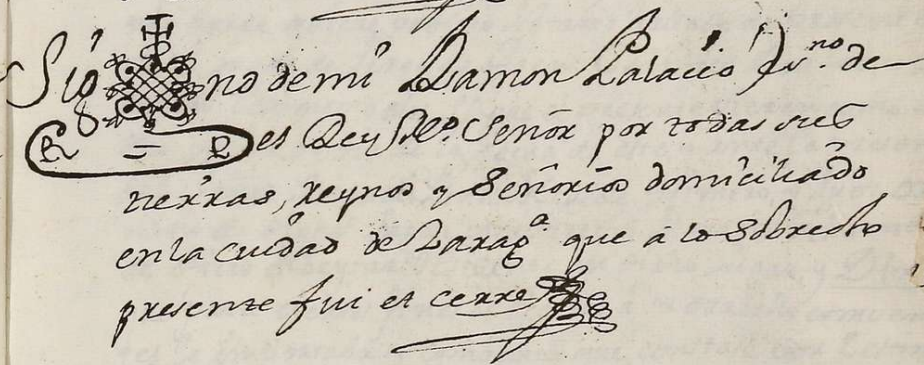 Sig no de mi Ramon Palacio Esno. de
R = P el Rey Nro. Señor por todas sus
tierras, Reynos y Señorios domiciliado
en la ciudad de Zaraga que á lo sobredho
presente fui et cerre